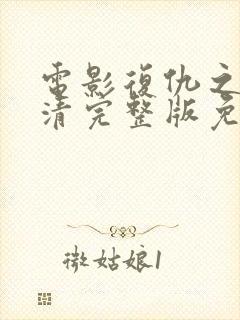 電影復仇之
清完整版免
微姑娘1